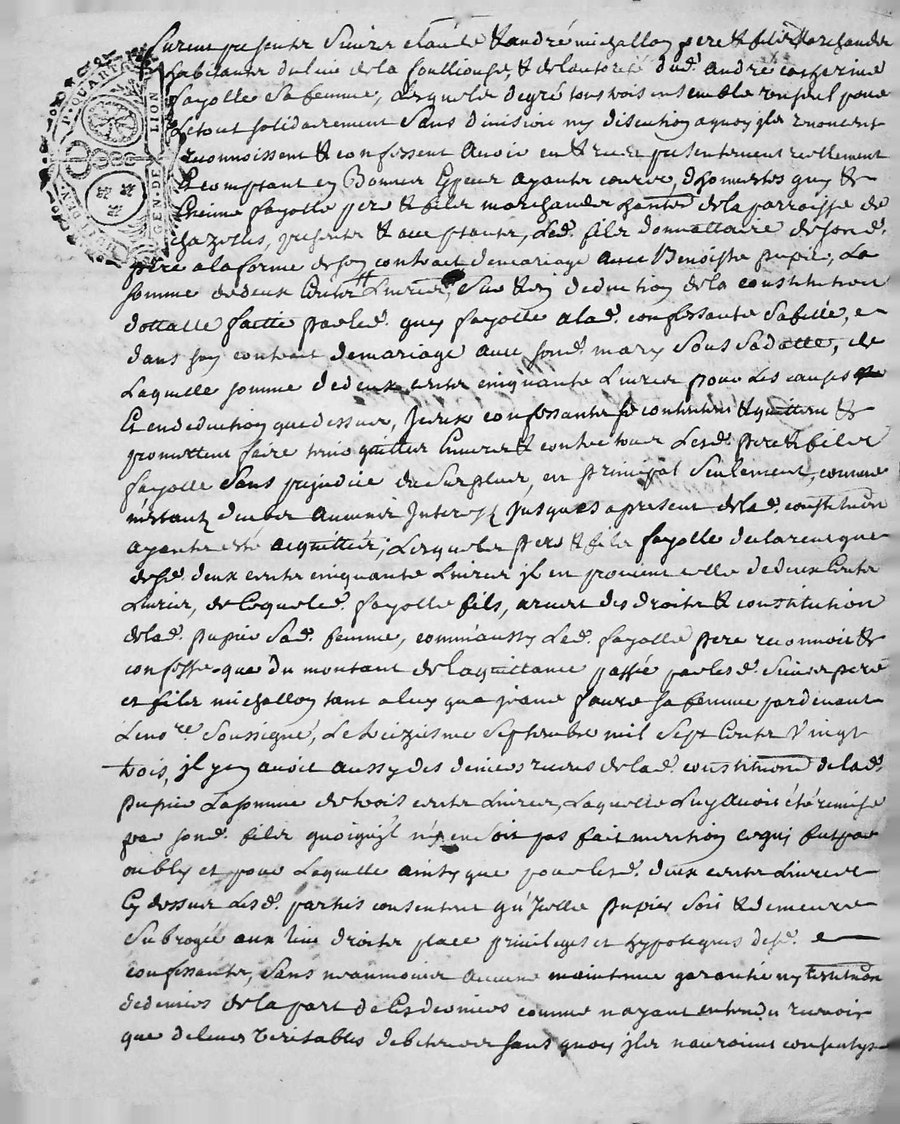 GEN. DE LION
Furent presents Sieurs Claude & andré michallon pere & fils Marchands
habitants du lieu de la fouillouse, & de l'autorité dud. andré catherine
fayolle sa femme, Lesquels de gré tous trois ensemble un seul pour
Le tout solidairement sans division ny discution a quoy ils renoncent
reconnoissent & confessent avoir eu & receu presentement reellement
& comptant en bonnes especes ayants cours, d'honnestes guy &
fayolle pere & fils marchands de la parroisse de
chazelles, presents & acceptants, Led. fils donnattaire de sond.
pere a la forme de son contrait de mariage avec Benoiste pupier, La
somme de deux Cents Livres, sur & en deduction de la constitution
dottalle faitte par led. guy fayolle a lad. confessante sa fille,
dans son contrait de mariage avec sond. mary sous sa datte, de
Laquelle somme de deux cents cinquante Livres pour Les causes
Et en deduction que dessus, Iceux confessants se contentent & quittent &
promettent faire tenir quittes Envers & contre tous Lesd. pere & fils
fayolle sans prejudice du surplus, en principal seulement, comme
n'estant deub aucuns Interets Jusques a present de lad. constitution
ayants esté acquittés, Lesquels pere & fils fayolle declarent que
desd. deux cents cinquante Livres il en provient celle de deux Cents
Livres, de Ce que led. fayolle fils, a receu des droits & constitution
de lad. pupier sad. femme, comm'aussy Led. fayolle pere reconnoit &
confesse que du montant de la quittance passée par lesd. Sieurs pere
et fils michallon tant a luy qua jeane faure sa femme pardevant
Le nore. Soussigné, Le treizieme Septembre mil Sept Cents Vingt
trois, il y en avoit aussy des deniers receus de lad. constitution de lad.
pupier La somme de trois cents Livres, Laquelle Luy avoit été remise
par sond. fils quoiqu'il n'y en soit pas fait mention ce qui fut par
oubly et pour Laquelle ainsy que pour lesd. deux cents Livres
Cy dessus Lesd. partis consentent qu'Icelle pupier soit & demeure
Subrogée aux lieu droits place privileges et hypoteques desd.
confessants, Sans neanmoins aucune maintenue garantie ny restitution
de deniers de la part de Ces derniers comme n'ayant entendu recevoir
que de leurs veritables debiteurs sans quoy ils n'auroient consentys